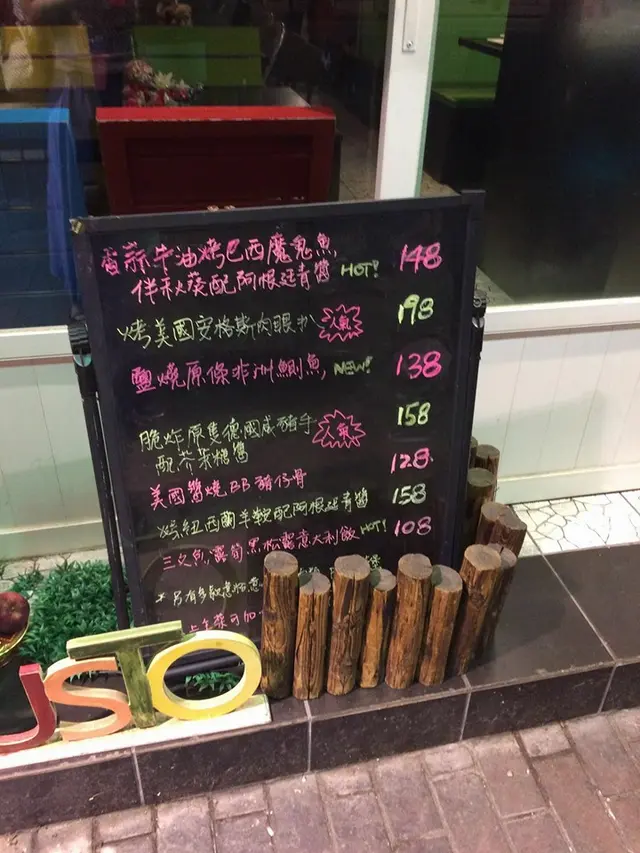 香蒜牛油烤巴西魔鬼魚 148
伴秋葵配阿根廷青醬 HOT!
烤美國安格斯肉眼扒 人氣 198
鹽燒原條非洲鯽魚 NEW! 138
脆炸原隻德國咸豬手 人氣 158
配芥末糖醬
美國醬燒BB豬仔骨 128
紐西蘭羊鞍配阿根廷青醬 158
三文魚露筍黑松露意大利飯 HOT! 108
另有多款意
上主菜可加
USTO